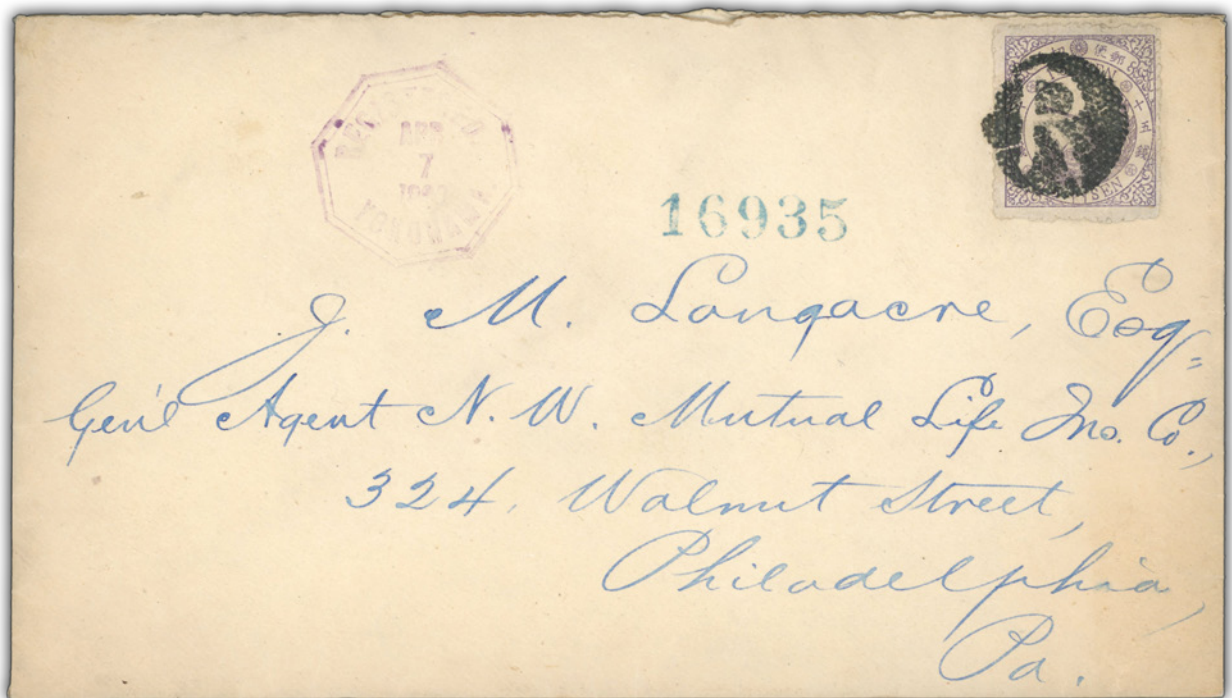 REGISTERED
APR
7
YOKOHAMA
郵便
十五銭
SEN
16935
J. M. Longacre, Esq.
Gen'l Agent N. W. Mutual Life Ins. Co.,
324. Walnut Street,
Philadelphia,
Pa.